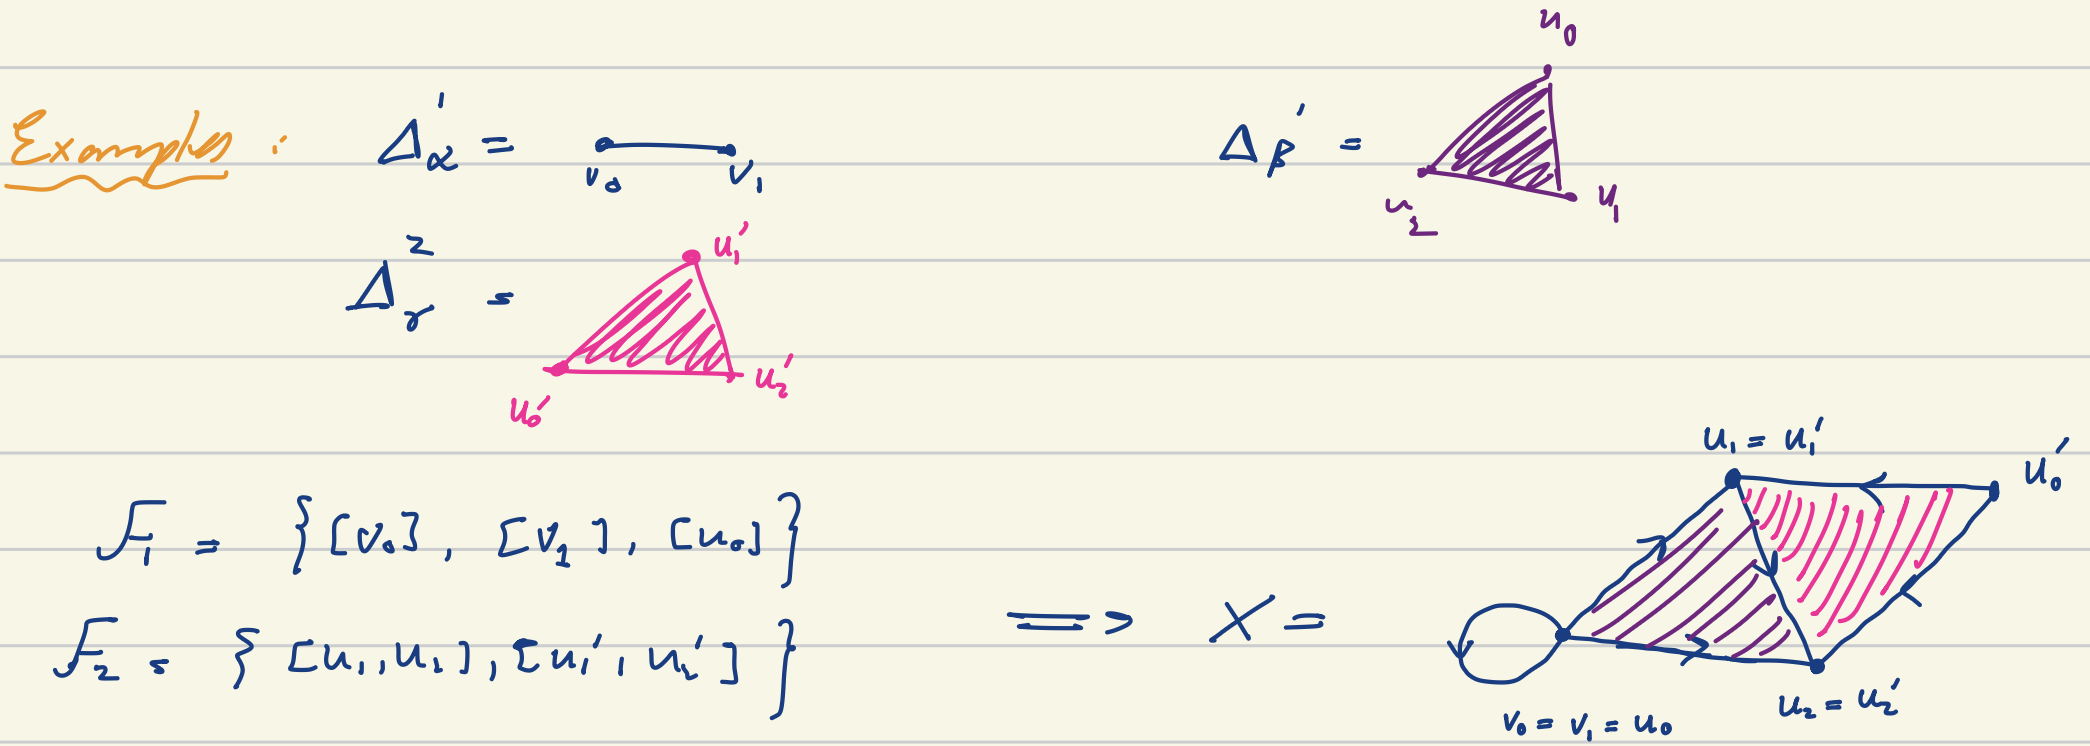 Example :
Δ'_α =
v₀ v₁
Δ_β' =
u₀
u₂ u₁
Δ²_γ =
u₁'
u₂'
u₀'
F₁ = {[v₀], [v₁], [u₀]}
F₂ = {[u₁, u₂], [u₁', u₂']}
=> X =
u₁ = u₁'
u₀'
u₂ = u₂'
v₀ = v₁ = u₀